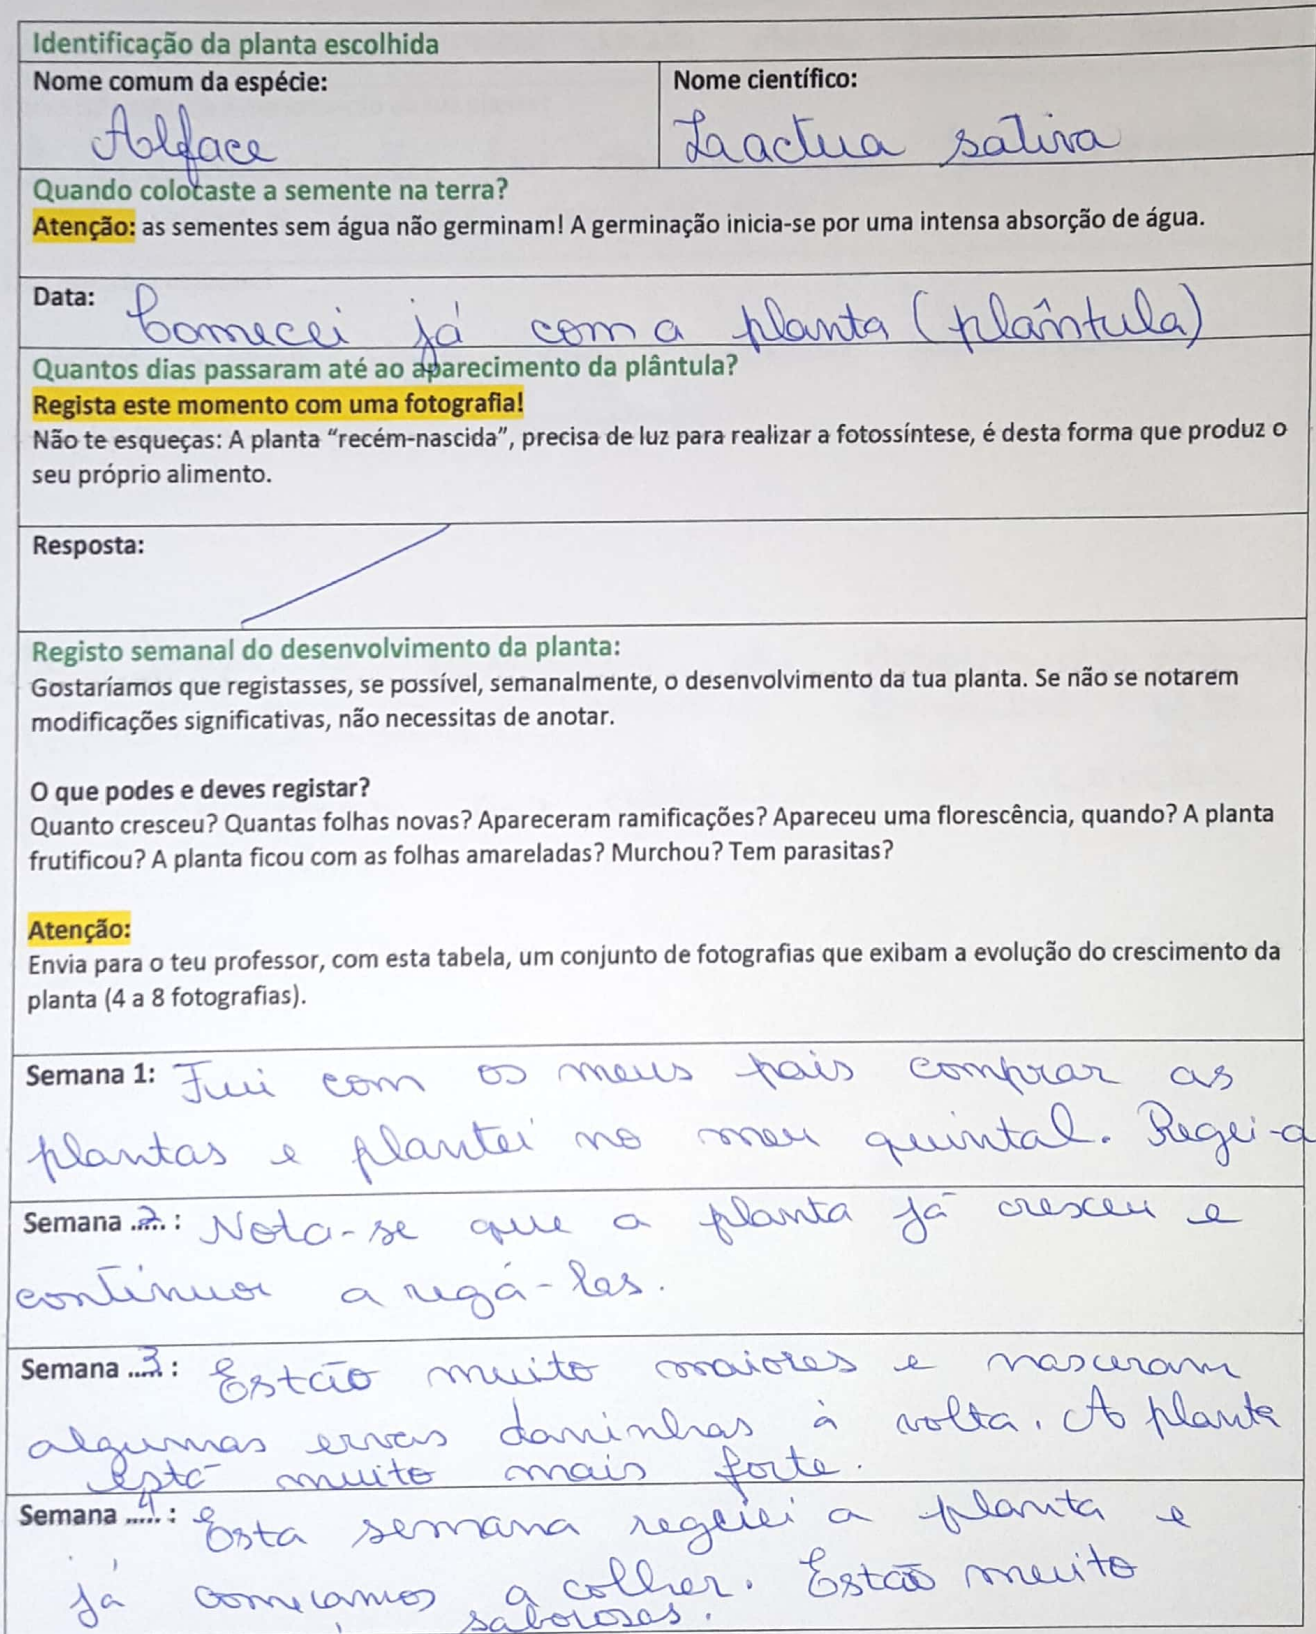 Identificação da planta escolhida
Nome comum da espécie:
Alface
Nome científico:
Laactua sativa
Quando colocaste a semente na terra?
Atenção: as sementes sem água não germinam! A germinação inicia-se por uma intensa absorção de água.
Data: Comecei já com a planta (plântula)
Quantos dias passaram até ao aparecimento da plântula?
Regista este momento com uma fotografia!
Não te esqueças: A planta “recém-nascida”, precisa de luz para realizar a fotossíntese, é desta forma que produz o
seu próprio alimento.
Resposta:
Registo semanal do desenvolvimento da planta:
Gostaríamos que registasses, se possível, semanalmente, o desenvolvimento da tua planta. Se não se notarem
modificações significativas, não necessitas de anotar.
O que podes e deves registar?
Quanto cresceu? Quantas folhas novas? Apareceram ramificações? Apareceu uma florescência, quando? A planta
frutificou? A planta ficou com as folhas amareladas? Murchou? Tem parasitas?
Atenção:
Envia para o teu professor, com esta tabela, um conjunto de fotografias que exibam a evolução do crescimento da
planta (4 a 8 fotografias).
Semana 1: Fui com os meus pais comprar as
plantas e plantei no meu quintal. Regei-a
Semana ..2.. : Nota-se que a planta já cresceu e
continuor a regá-las.
Semana ..3.. : Estão muito maiores e nasceram
algumas ervas daninhas à volta. A planta
está muito mais forte.
Semana ..4.. : Esta semana regeiei a planta e
já começamos a colher. Estão muito
saborosas.